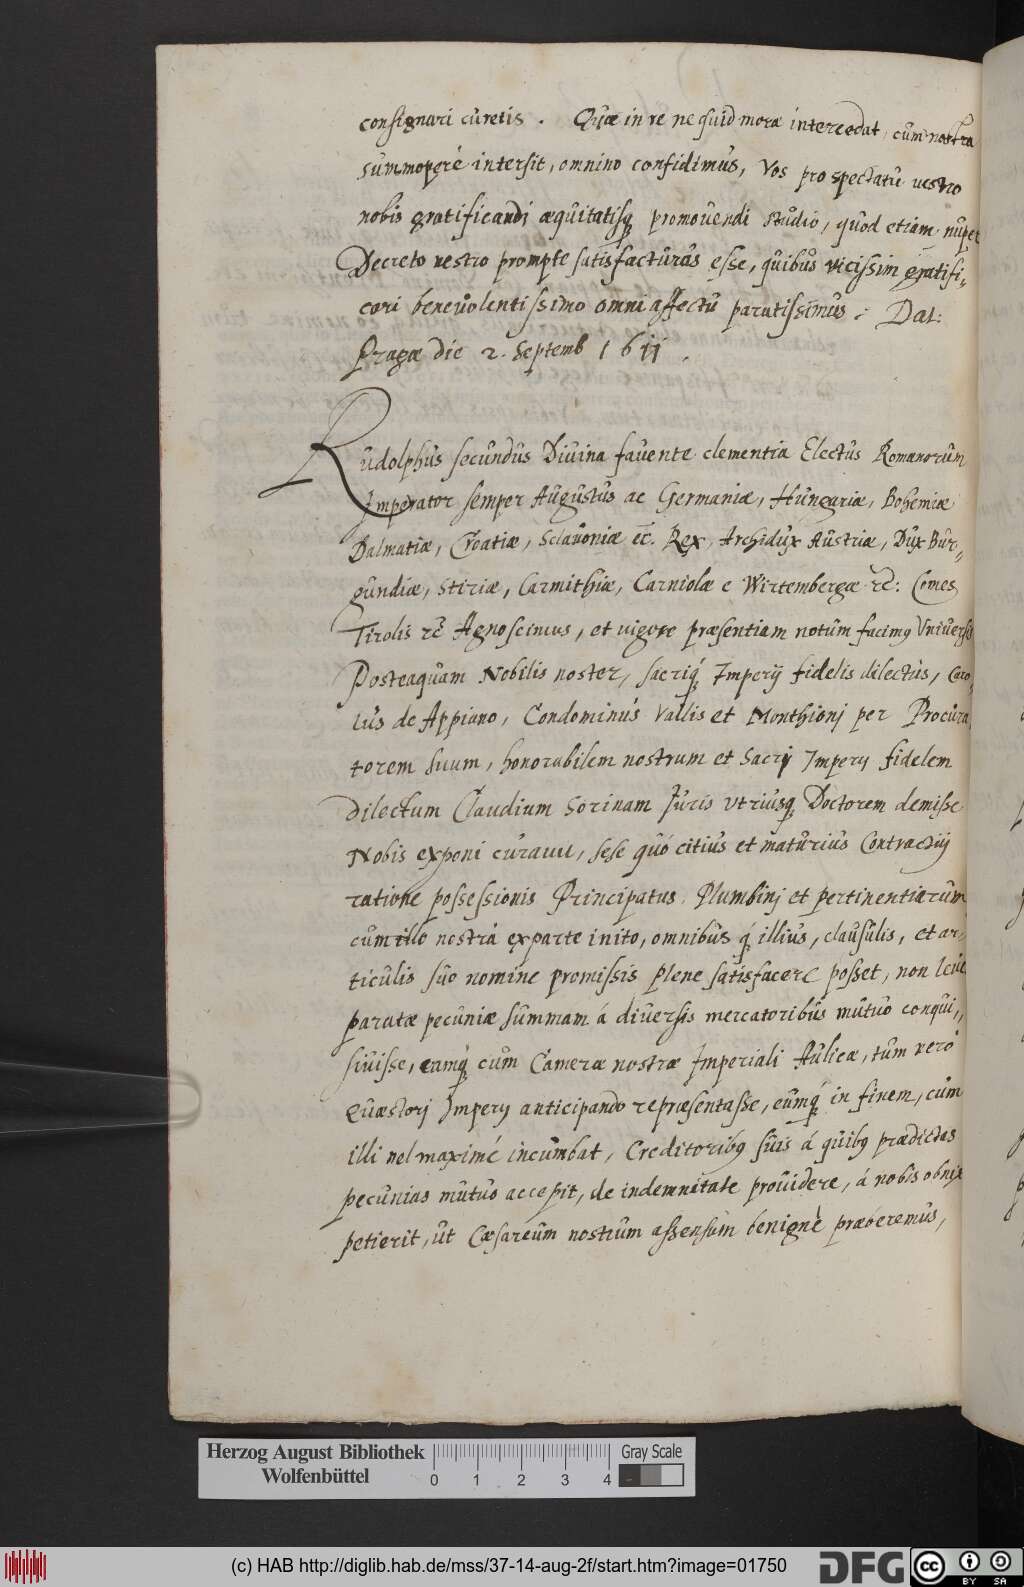 consignari curetis. Quæ in re ne quid moræ intercedat, cum nostra
summoperé intersit, omnino confidimus, Vos pro spectatu vestro
nobis gratificandi æquitatisq promouendi studio, quod etiam nuper
Decreto vestro prompte satisfacturos esse, quibus vicissim gratifi„
cari beneuolentissimo omni affectu paratissimus. Dat:
Pragæ die 2. Septemb 1611.
Rudolphus secundus Diuina fauente clementia Electus Romanorum
Imperator semper Augustus ac Germaniæ, Hungariæ, Bohemiæ
Dalmatiæ, Croatiæ, Sclauoniæ ec. Rex, Archidux Austriæ, Dux Bur„
gundiæ, Stiriæ, Carinthiæ, Carniolæ e Wirtembergæ rc: Comes
Tirolis rc Agnoscimus, et vigore præsentiam notum facimq Vniuersis
Posteaquam Nobilis noster, sacriq Imperij fidelis dilectus, Caro„
lus de Appiano, Condominus Vallis et Monthionj per Procura
torem suum, honorabilem nostrum et Sacrij Impery fidelem
dilectum Claudium Sorinam Juris vtriusq Doctorem demisse
Nobis exponi curauit, sese quó citius et maturius Contractuj
ratione possessionis Principatus Plumbinj et pertinentiarum
cum illo nostrà exparte inito, omnibus q illius, clausulis, et ar„
ticulis suo nomine promissis plene satisfacere posset, non leue
paratæ pecuniæ summam á diuersis mercatoribus mutuo conqui„
siuisse, eamq cum Cameræ nostræ Imperiali Aulicæ, tum veró
Quæstorj Impery anticipando repræsentasse, eumq in finem, cum
illi vel maximé incumbat, Creditoribq suis á quibq prædictas
pecunias mutuo accepit, de indemnitate prouidere, á nobis obnixe
petierit, ut Cæsareum nostrum assensum benignè præberemus,
Herzog August Bibliothek
Wolfenbüttel
0 1 2 3 4
Gray Scale
(c) HAB http://diglib.hab.de/mss/37-14-aug-2f/start.htm?image=01750
DFG
cc BY SA